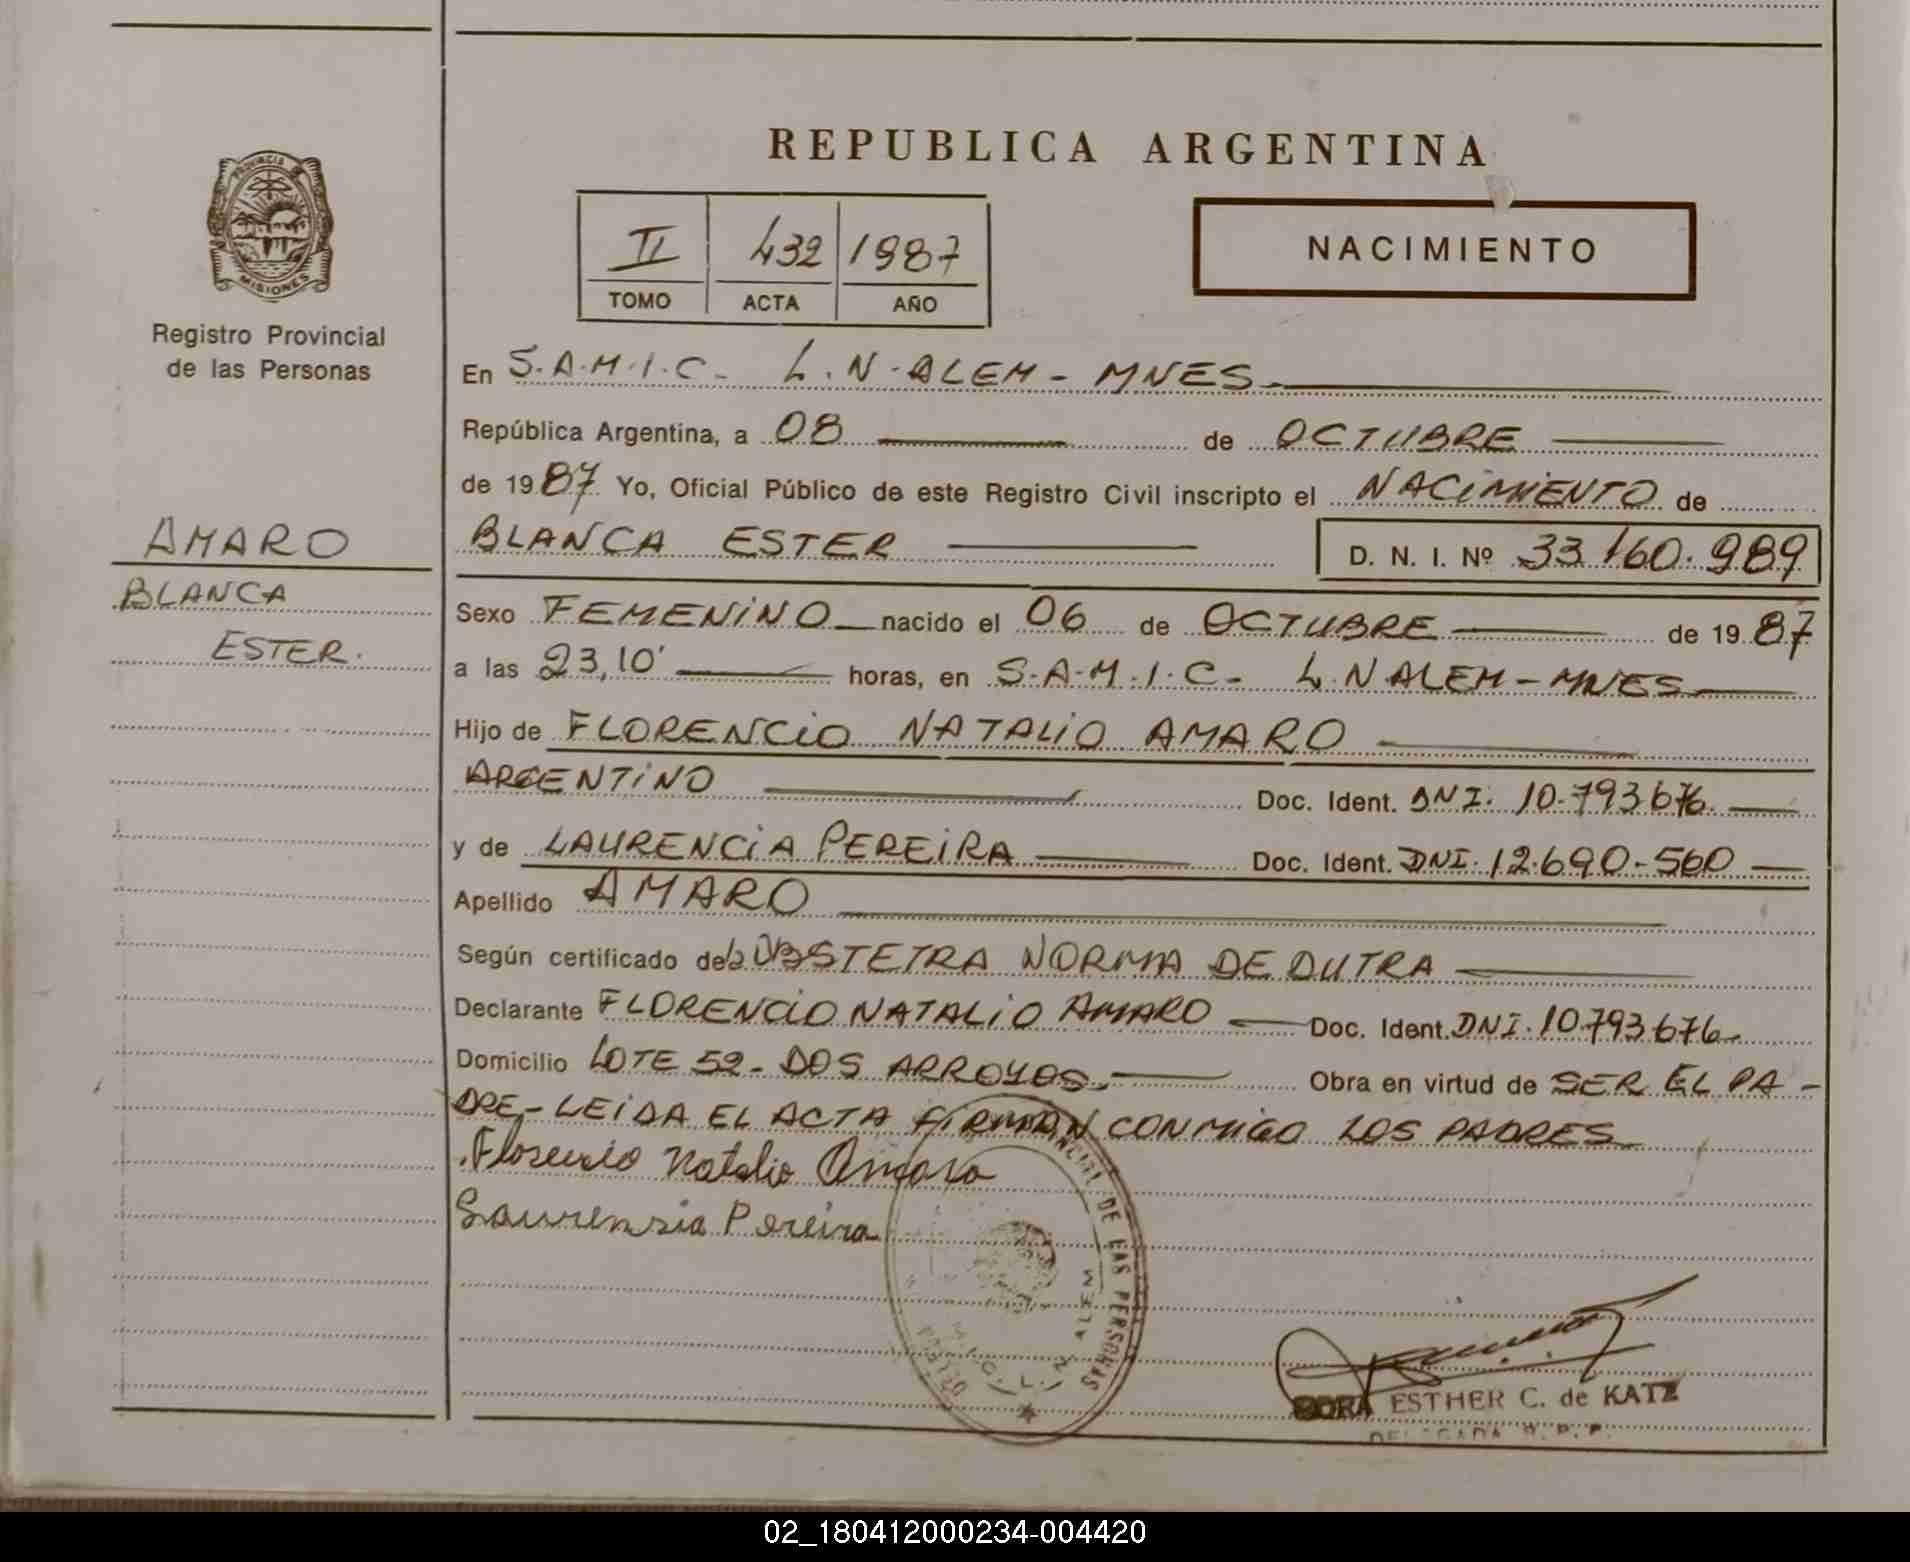 REPUBLICA ARGENTINA
PROVINCIA DE
MISIONES
Registro Provincial
de las Personas
II 432 1987
TOMO ACTA AÑO
NACIMIENTO
En S.A.M.I.C- L.N.ALEM-MNES-
República Argentina, a 08 de OCTUBRE
de 1987 Yo, Oficial Público de este Registro Civil inscripto el NACIMIENTO de
AMARO
BLANCA
ESTER.
BLANCA ESTER D. N. I. Nº 33.160.989
Sexo FEMENINO nacido el 06 de OCTUBRE de 1987
a las 23,10' horas, en S.A.M.I.C- L.N ALEM-MNES
Hijo de FLORENCIO NATALIO AMARO
ARGENTINO Doc. Ident. DNI. 10.793.676
y de LAURENCIA PEREIRA Doc. Ident. DNI. 12.690-560
Apellido AMARO
Según certificado dela OBSTETRA NORMA DE DUTRA
Declarante FLORENCIO NATALIO AMARO Doc. Ident. DNI. 10.793.676-
Domicilio LOTE 52- DOS ARROYOS- Obra en virtud de SER EL PA-
DRE- LEIDA EL ACTA FIRMAN CONMIGO LOS PADRES
Florencio Natalio Amaro
Laurensia Pereira
DE LAS PERSONAS
ALEM
DORA ESTHER C. de KATZ
DELEGADA R. P. P.
02_180412000234-004420